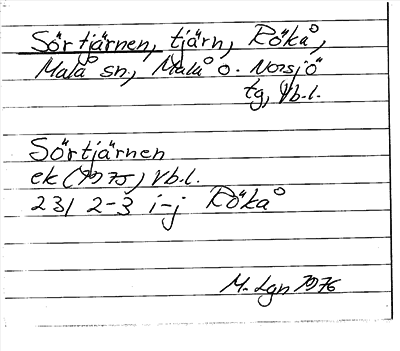 Sörtjärnen, tjärn, Rökå,
Malå sn., Malå o. Norsjö
tg, Vb.l.
Sörtjärnen
ek (1975) Vb.l.
231 2-3 i-j Rökå
M. Lgn 1976